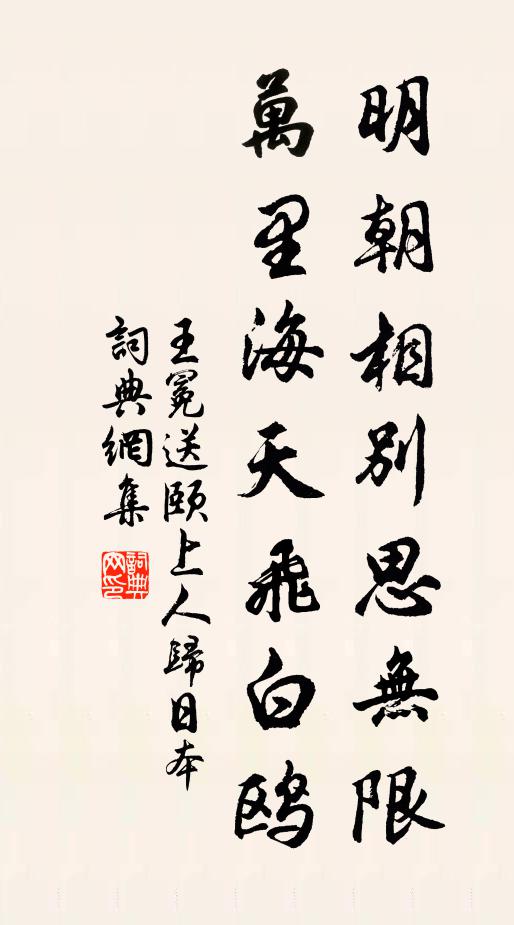 明朝相別思無限
萬里海天飛白鷗
王冕送頤上人歸日本
詞典網集
詞典網印